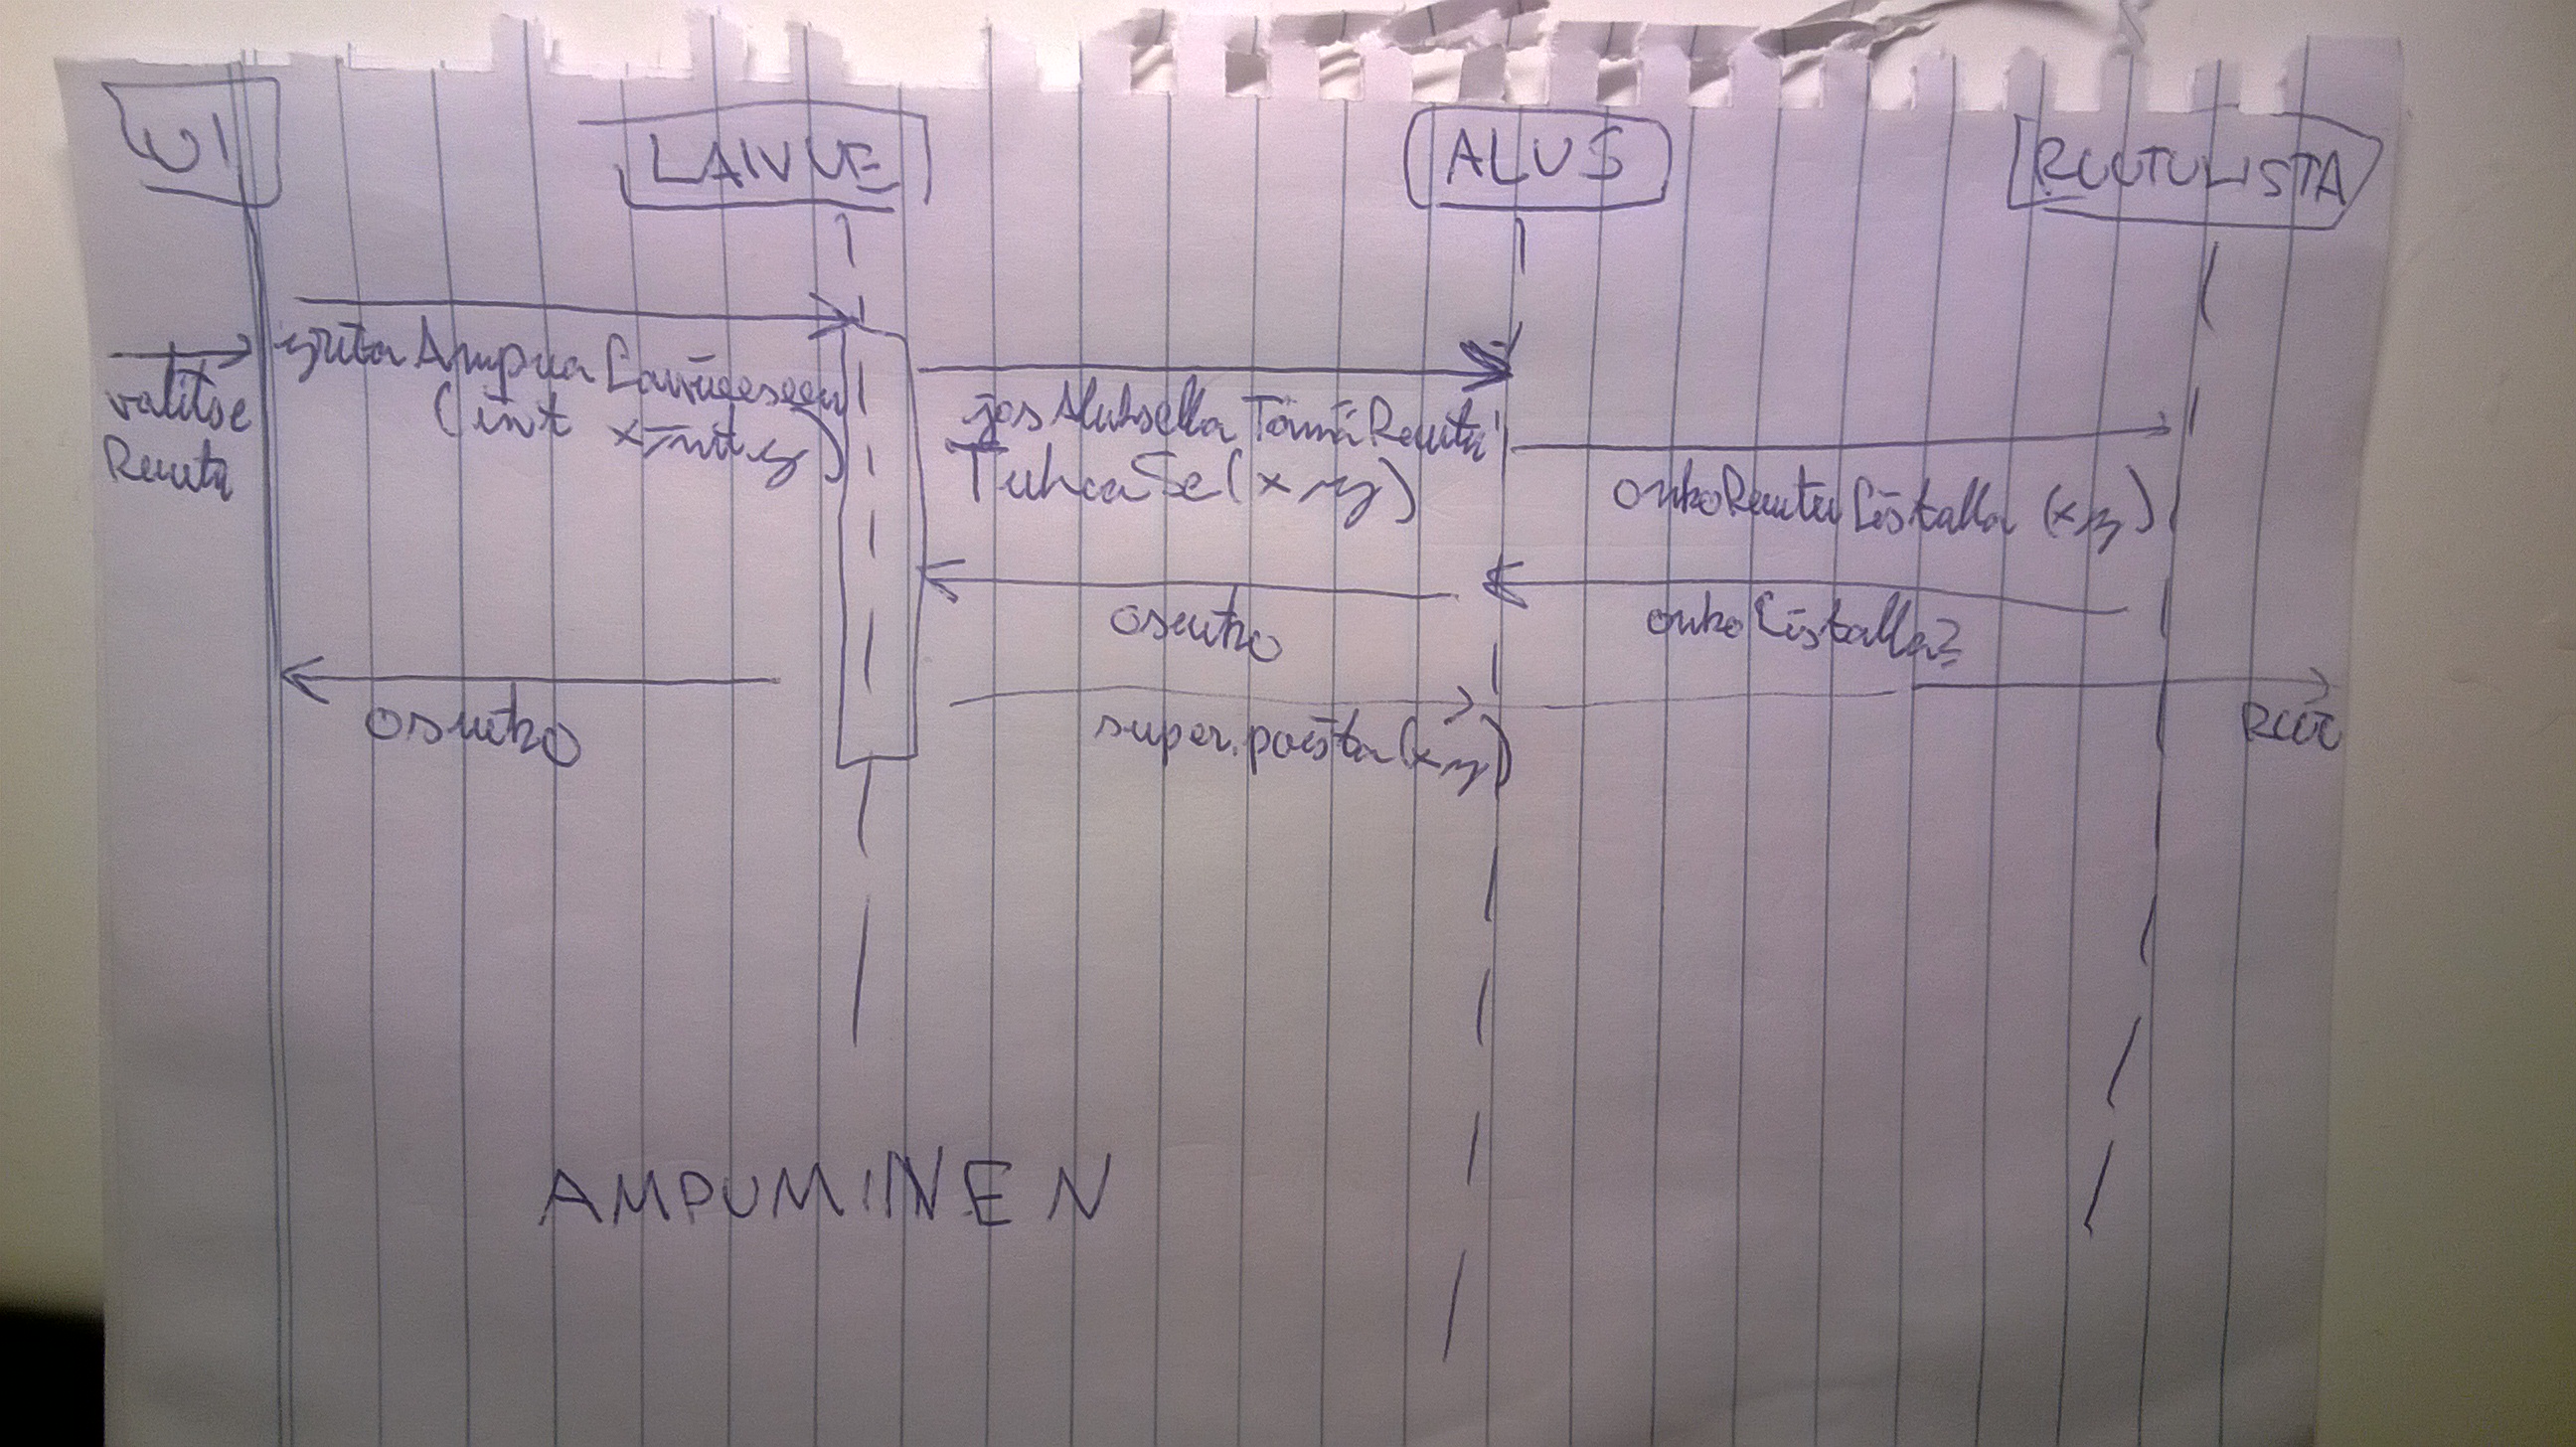 UI
LAIVUE
ALUS
RUUTULISTA
valitse
Ruutu
yritaAmpuaLaivueeseen
(int x, int y)
josAluksellaTämäRuutu
TuhoaSe(x, y)
onkoRuutuListalla (x, y)
osuiko
onkoListalla?
osuiko
super.poista(x, y)
AMPUMINEN